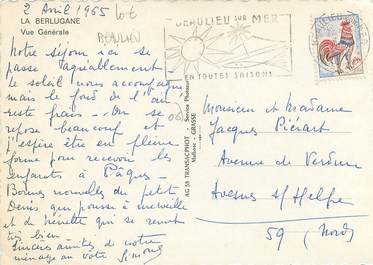 2 Avril 1965
LA BERLUGANE
Vue Générale
BEAULIEU
Notre séjour ici se
passe agréablement
le soleil nous accompagne
mais le fond de l'air
reste frais - On se
repose beaucoup et
j'espère être en pleine
forme pour recevoir les
enfants à Pâques -
Bonnes nouvelles du petit
Denis qui pousse à merveille
et de qui se remet
très bien
Sincères amitiés de notre
ménage au vôtre Simone
AG 58 TRANSACPHOT Service Photocor
Molinard - GRASSE
BEAULIEU SUR MER
EN TOUTES SAISONS
Monsieur et Madame
Jacques Piérart
Avenue de Verdun
Avesnes s/ Helpe
59 (Nord)